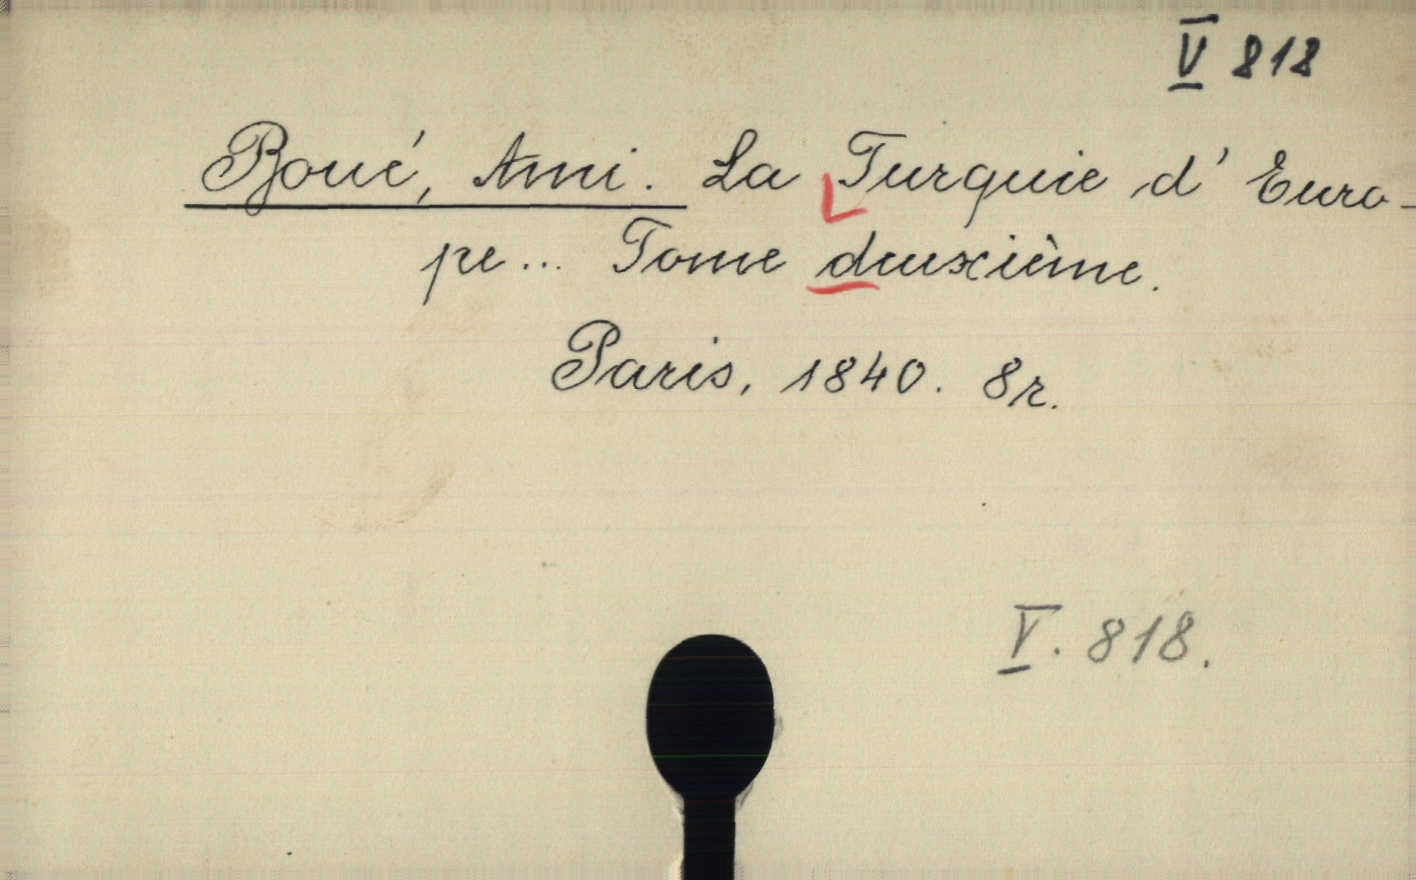 V 818
Boué, Ami. La Turquie d' Euro-
pe... Tome deuxième.
Paris, 1840. 8r.
V. 818.